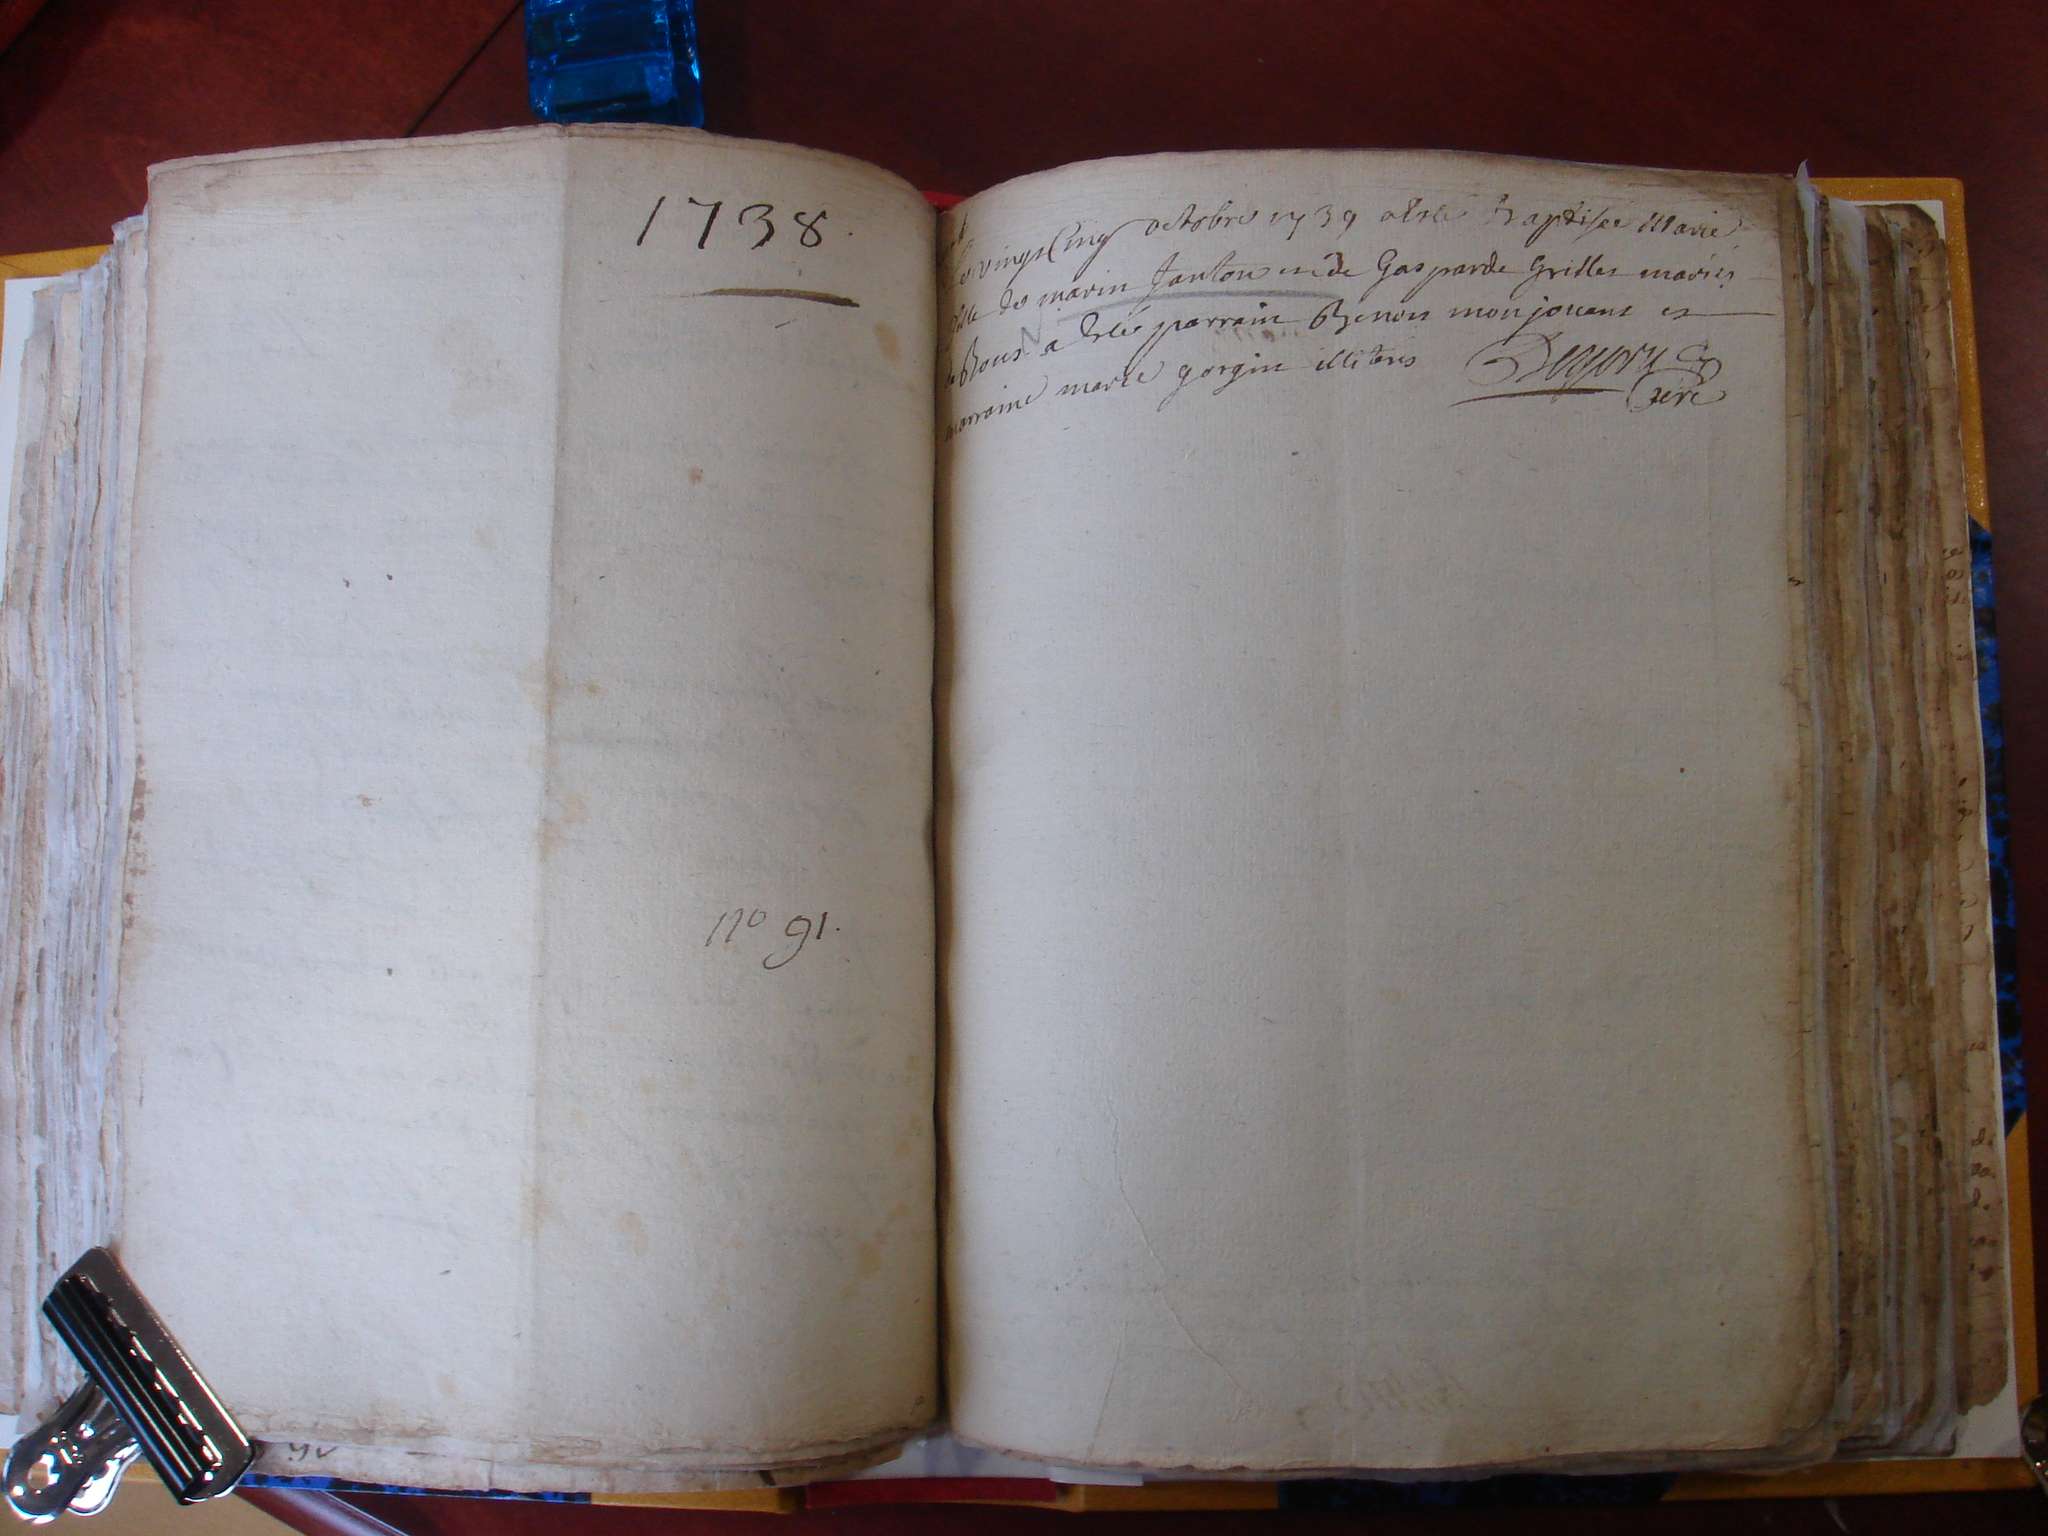 1738.
no 91.
Le vingt Cinq octobre 1739 a este Baptisée Marie
fille de marin Janton et de Gasparde Grilles mariés
a este parrain Benois monjouant et
marraine marie gorgin illiteris
Curé